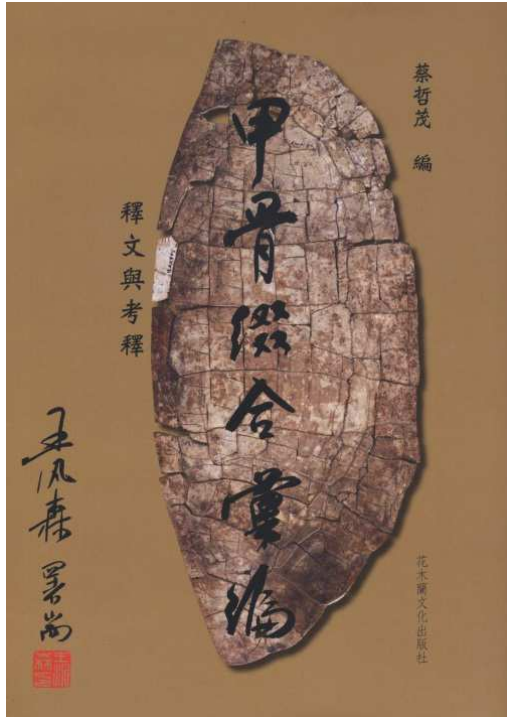 蔡哲茂 編
甲骨綴合彙編
釋文與考釋
署耑
花木蘭文化出版社